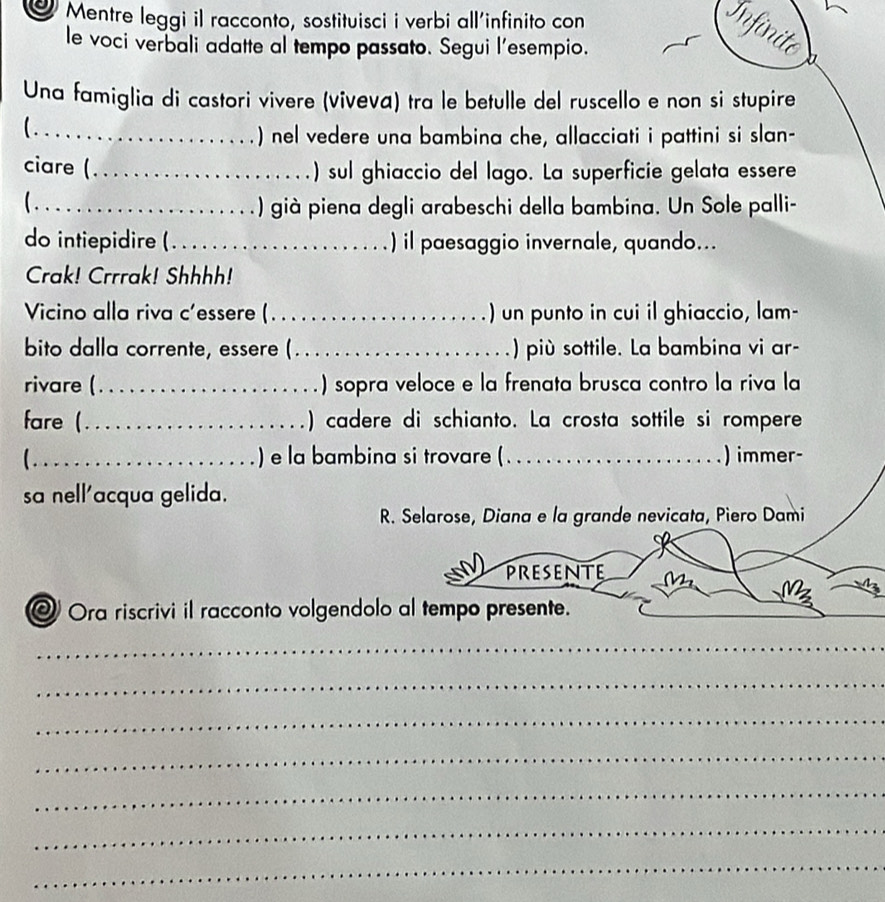 Mentre leggi il racconto, sostituisci i verbi all'infinito con
le voci verbali adatte al tempo passato. Segui l'esempio.
Infinito
Una famiglia di castori vivere (viveva) tra le betulle del ruscello e non si stupire
(......................) nel vedere una bambina che, allacciati i pattini si slan-
ciare (......................) sul ghiaccio del lago. La superficie gelata essere
(......................) già piena degli arabeschi della bambina. Un Sole palli-
do intiepidire (......................) il paesaggio invernale, quando...
Crak! Crrrak! Shhhh!
Vicino alla riva c'essere (......................) un punto in cui il ghiaccio, lam-
bito dalla corrente, essere (......................) più sottile. La bambina vi ar-
rivare (......................) sopra veloce e la frenata brusca contro la riva la
fare (......................) cadere di schianto. La crosta sottile si rompere
(......................) e la bambina si trovare (......................) immer-
sa nell'acqua gelida.
R. Selarose, Diana e la grande nevicata, Piero Dami
PRESENTE
Ora riscrivi il racconto volgendolo al tempo presente.